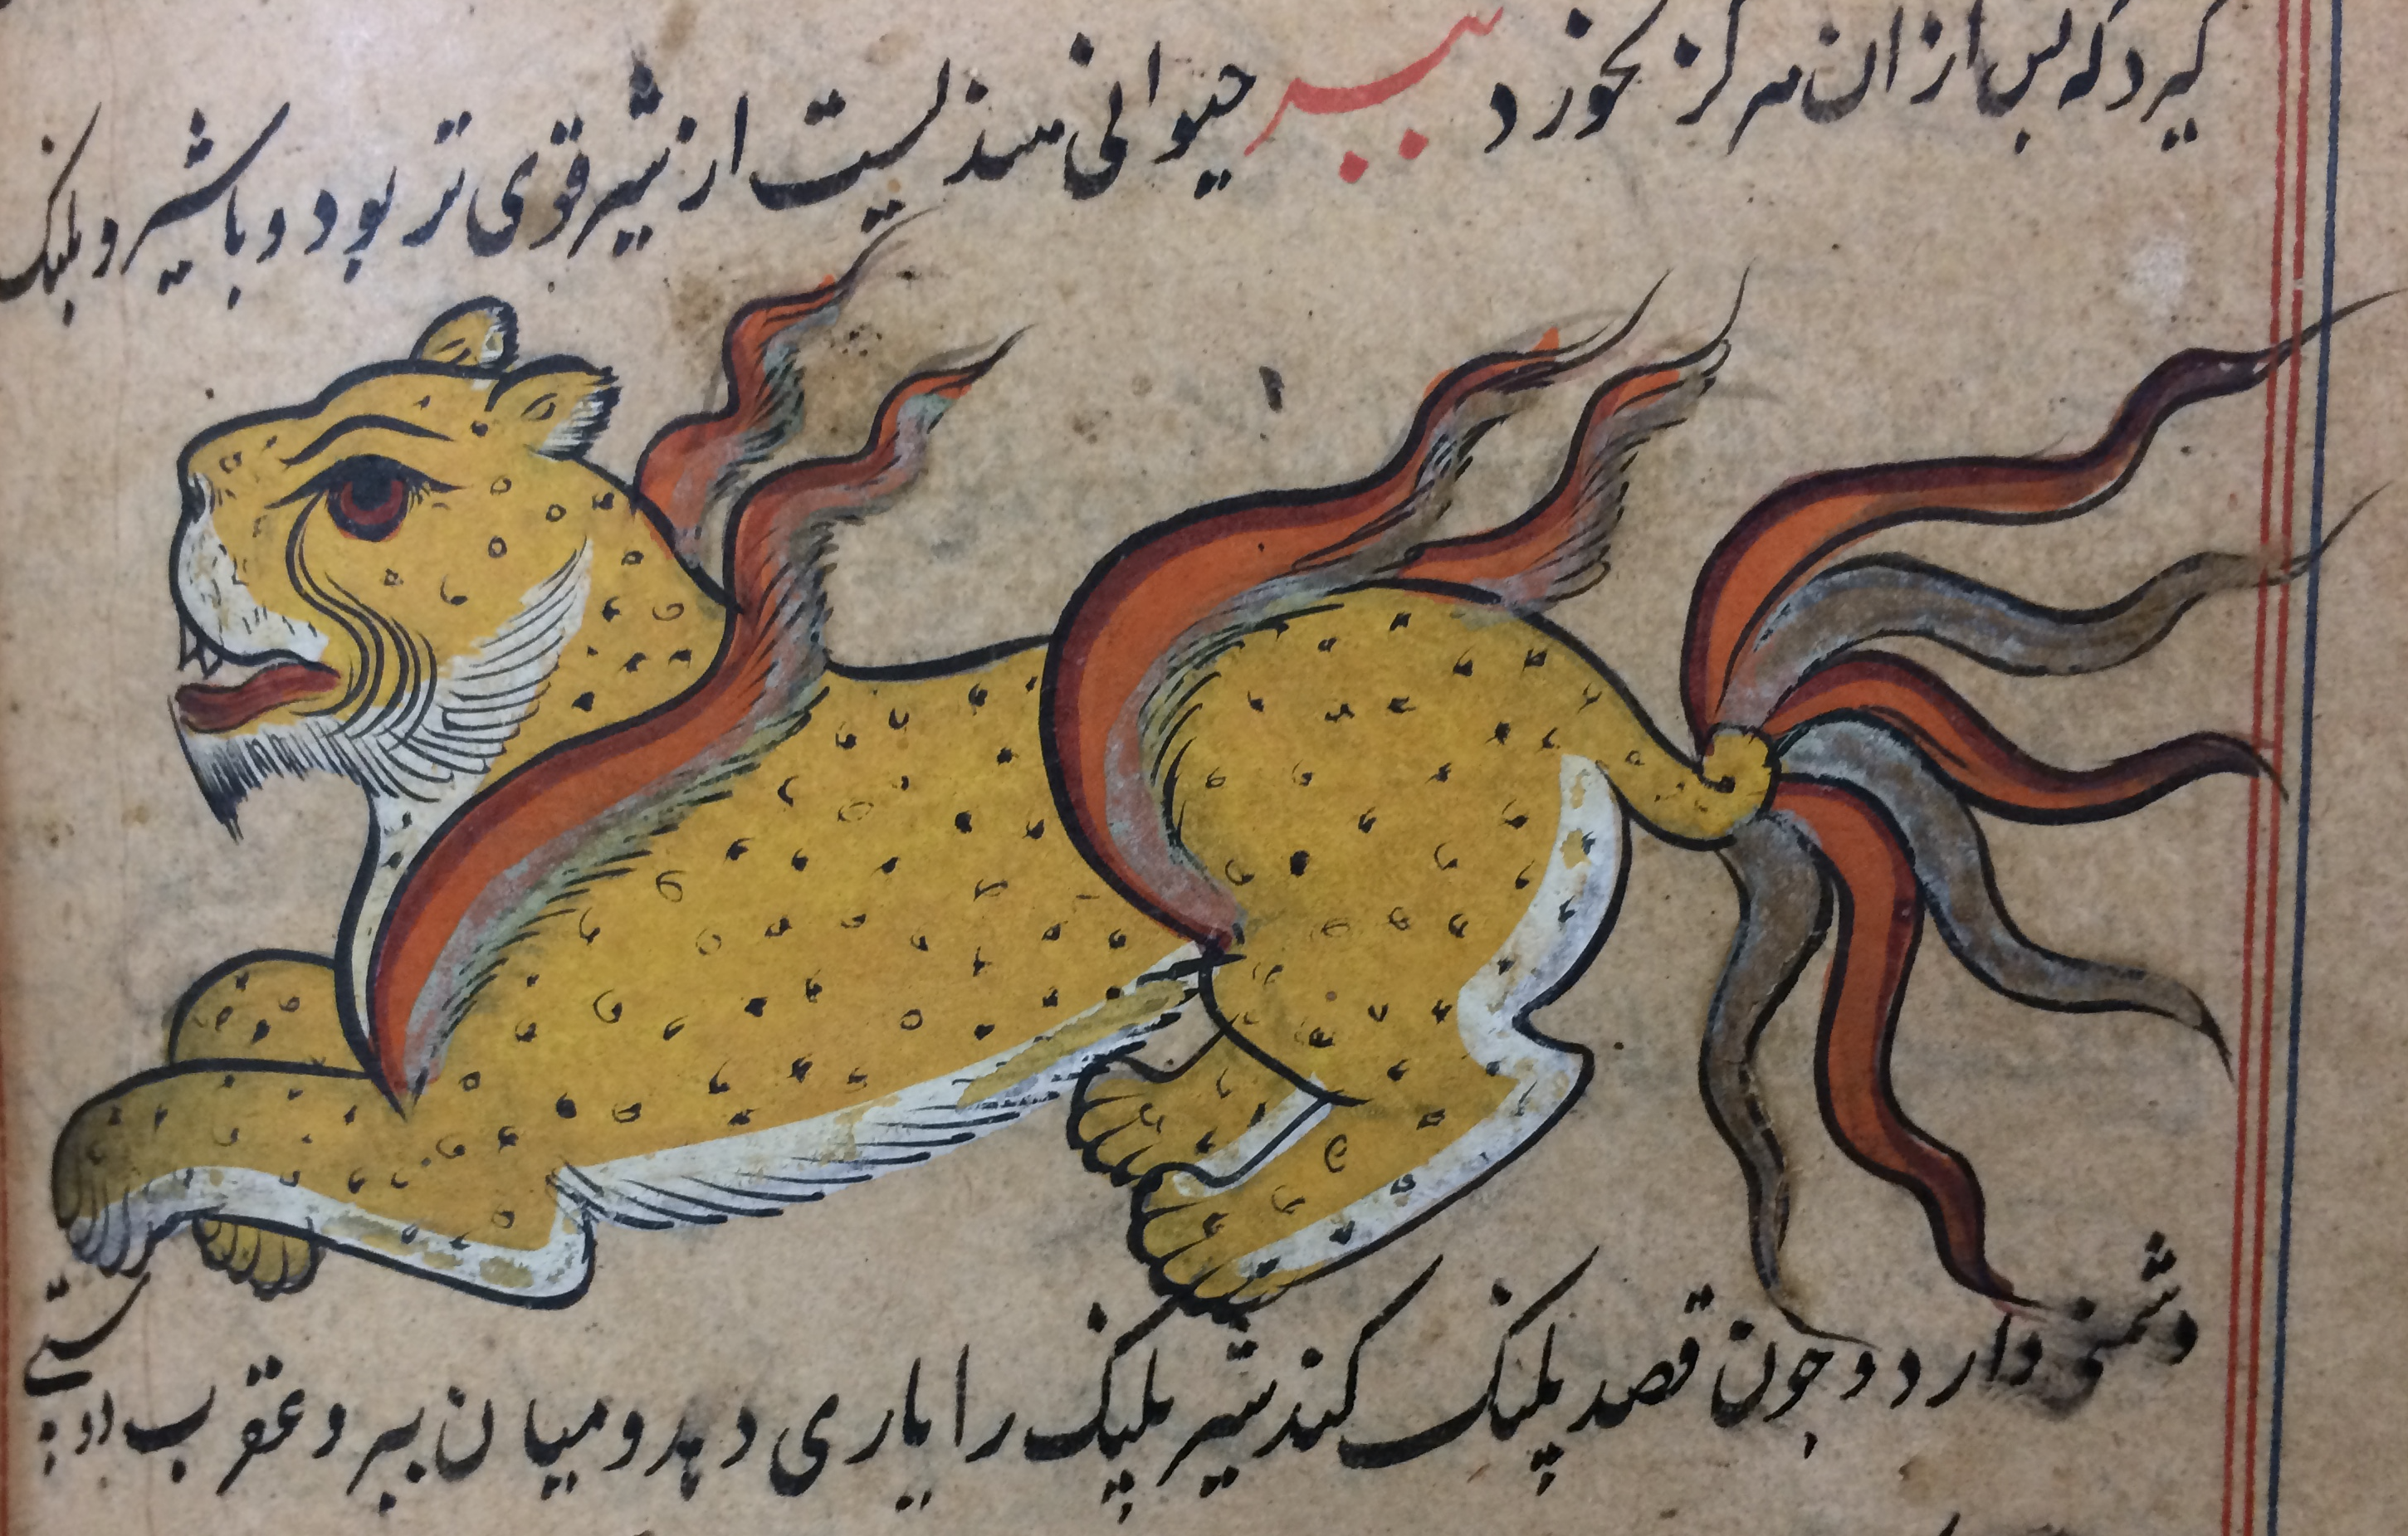 کیرد که بس از ان هرکز نخورد ببر حیوانی هندیست از شیر قوی تر بود و با شیر و پلنک
دشمنی دارد و جون قصد پلنک کند شیر پلنک را یاری دهد و میان ببر و عقرب دوستی